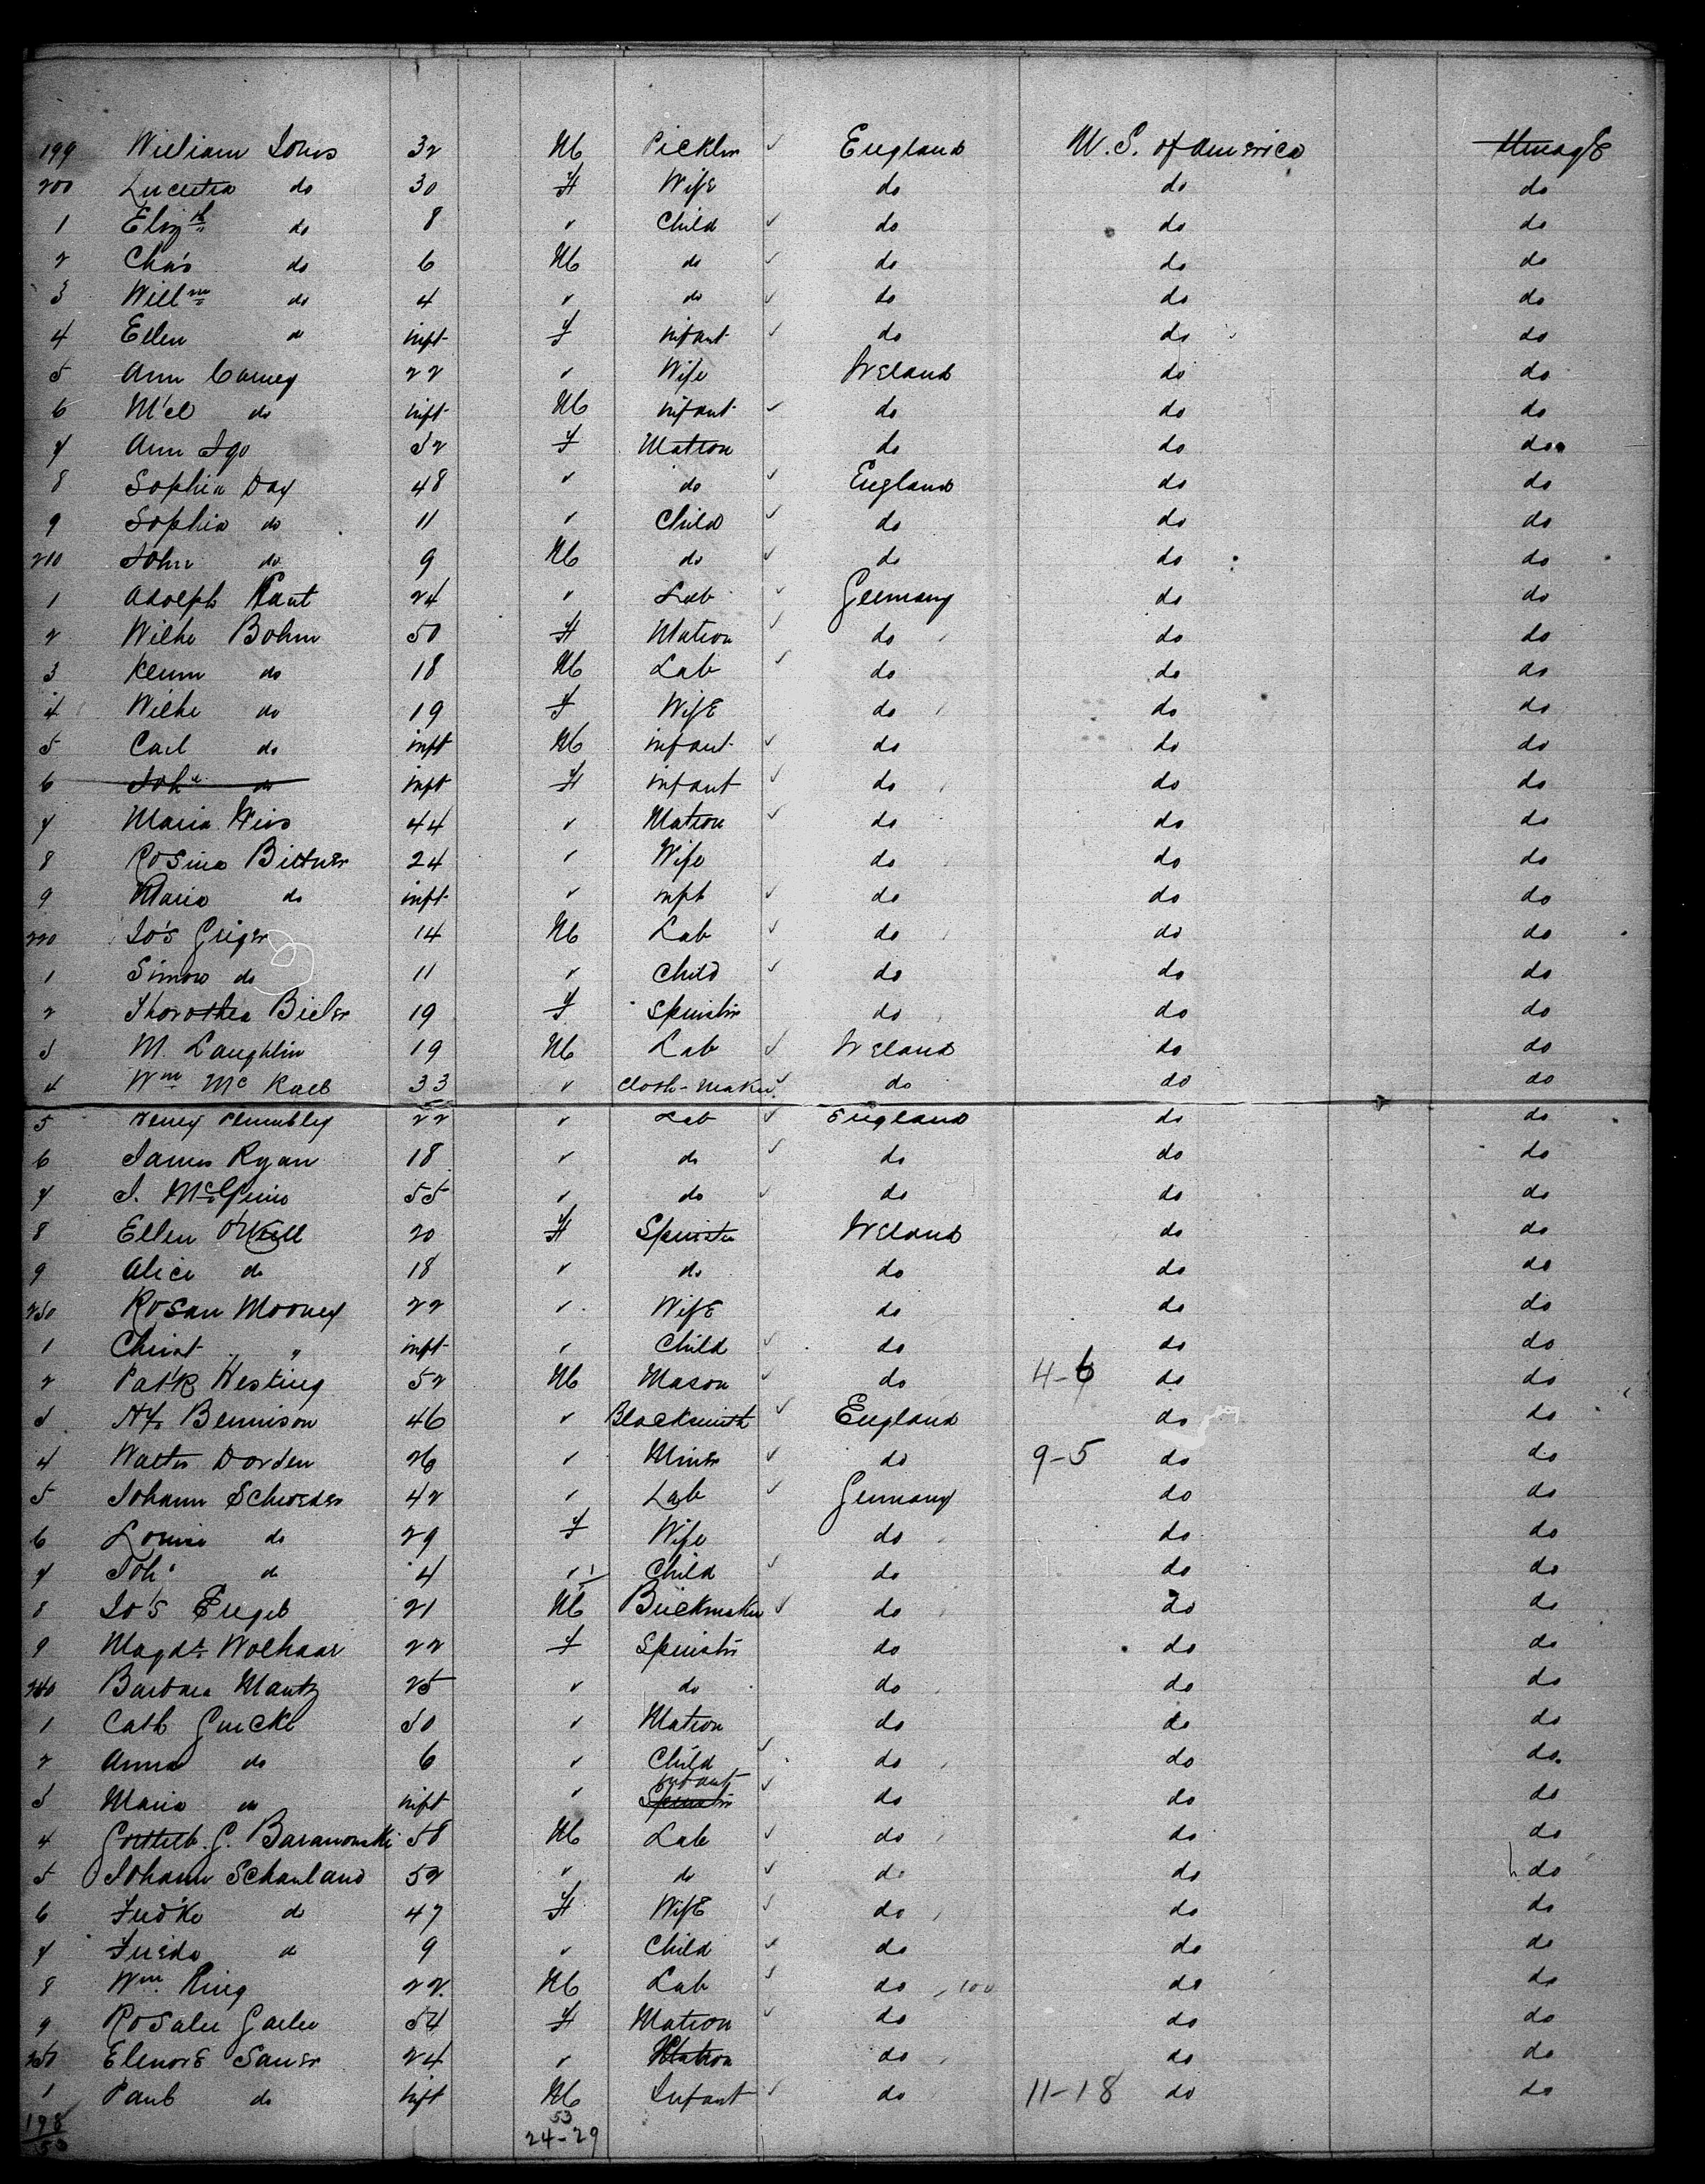 199 William Johns 32 M Pickler ✓ England U. S. of America Steerage
200 Lucretia do 30 F Wife do do do
1 Eliz.th do 8 ✓ Child ✓ do do do
2 Cha's do 6 M do ✓ do do do
3 Will.m do 4 ✓ do ✓ do do do
4 Ellen do inft F infant ✓ do do do
5 Ann Carney 22 ✓ Wife Ireland do do
6 M'cl do inft M infant ✓ do do do
7 Ann Igo 52 F Matron do do do
8 Sophia Day 48 ✓ do ✓ England do do
9 Sophia do 11 ✓ Child ✓ do do do
210 John do 9 M do ✓ do do do
1 Adolph 24 ✓ Lab ✓ Germany do do
2 Wilhe Bohm 50 F Matron ✓ do do do
3 do 18 M Lab ✓ do do do
4 Wilhe do 19 F Wife do do do
5 Carl do inft M infant ✓ do do do
6 Joh do inft F infant ✓ do do do
7 Maria Weis 44 ✓ Matron ✓ do do do
8 Rosina Bittner 24 ✓ Wife do do do
9 Maria do inft ✓ inft ✓ do do do
220 Jo's Geiger 14 M Lab ✓ do do do
1 Simon do 11 ✓ Child ✓ do do do
2 Thorothea Bieler 19 F Spinster do do do
3 M. Laughlin 19 M Lab ✓ Ireland do do
4 Wm Mc 33 ✓ Cloth-maker ✓ do do do
5 Henry Plumbley 22 ✓ Lab ✓ England do do
6 James Ryan 18 ✓ do ✓ do do do
7 J. 55 ✓ do ✓ do do do
8 Ellen O'Neill 20 F Spinster Ireland do do
9 Alice do 18 ✓ do do do do
230 Rosan Mooney 22 ✓ Wife do do do
1 Christ " inft ✓ Child ✓ do do do
2 Pat'k Hesting 52 M Mason ✓ do 4-6 do do
3 Bennison 46 ✓ Blacksmith ✓ England do do
4 Walter Dorden 26 ✓ Miner ✓ do 9-5 do do
5 Johann Schroeder 42 ✓ Lab ✓ Germany do do
6 Louise do 29 F Wife do do do
7 Joh. do 4 ✓ Child ✓ do do do
8 Jo's Engel 21 M Brickmaker ✓ do do do
9 Magda Wolhaar 22 F Spinster do do do
240 Barbara Mantz 25 ✓ do do do do
1 Cath Guicke 30 ✓ Matron do do do
2 Anna do 6 ✓ Child ✓ do do do
3 Maria do inft ✓ infant Spinster ✓ do do do
4 Gottlieb G. Baranowski 58 M Lab ✓ do do do
5 Johann Schauland 52 ✓ do ✓ do do do
6 Fred'ke do 47 F Wife ✓ do do do
7 Frieda do 9 ✓ Child ✓ do do do
8 Wm. King 22 M Lab ✓ do 100 do do
9 Rosalie 54 F Matron ✓ do do do
250 Elenore Sauer 24 ✓ Matron do do do
1 Paul do inft M Infant ✓ do 11-18 do do
198
53
53
24-29